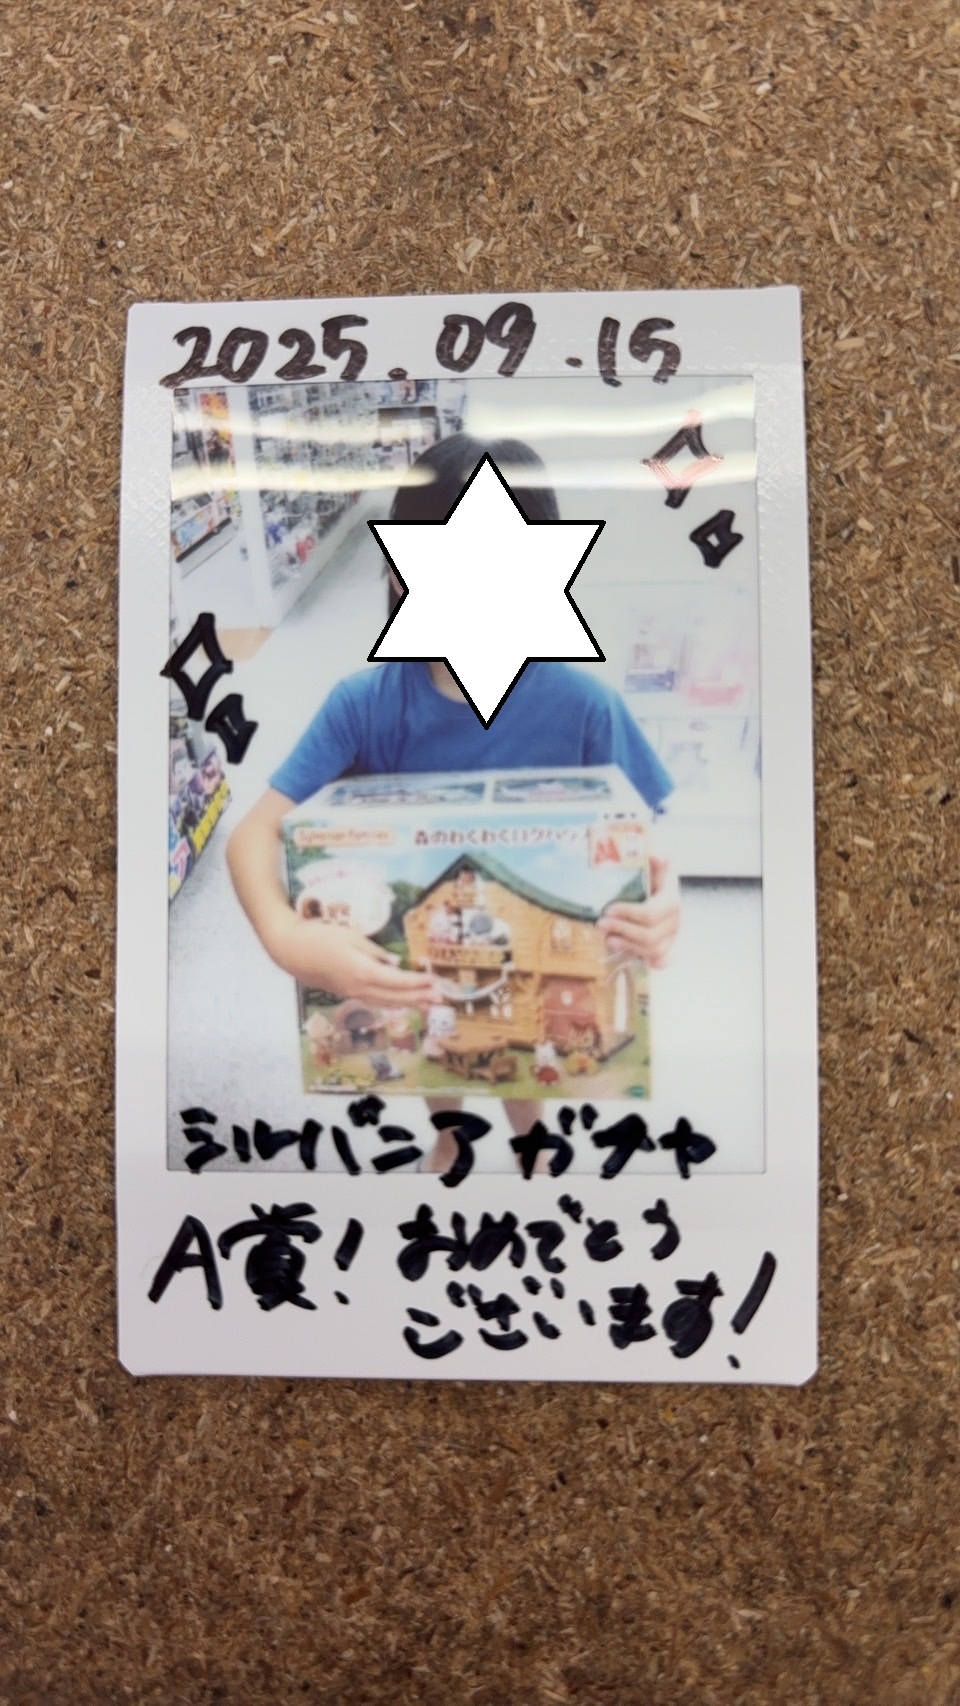 2025.09.15
Sylvanian Families
森のわくわくログハウス
シルバニアガチャ
A賞! おめでとう
ございます!